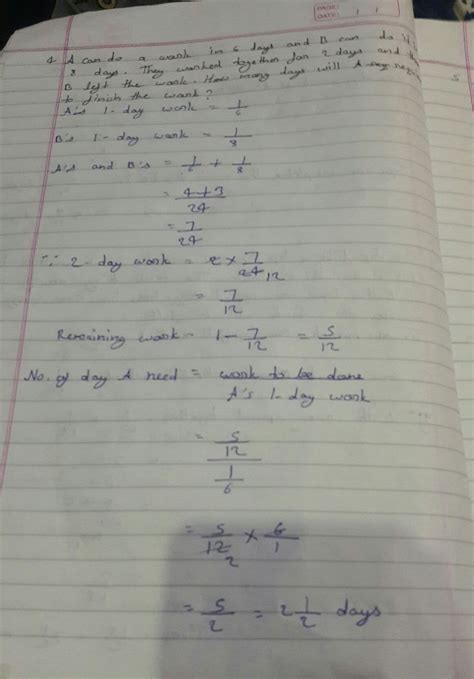 PAGE:
DATE: / /
4 A can do a work in 6 days and B can do it
8 days. They worked together for 2 days and
B left the work. How many days will A
to finish the work?
A's 1-day work = 1/6
B's 1-day work = 1/8
A's and B's = 1/6 + 1/8
= 4+3/24
= 7/24
∵ 2-day work = 2 × 7/24 12
= 7/12
Remaining work - 1 - 7/12 = 5/12
No. of day A need = work to be done / A's 1-day work
= 5/12 / 1/6
= 5/12 2 × 6/1
= 5/2 = 2 1/2 days